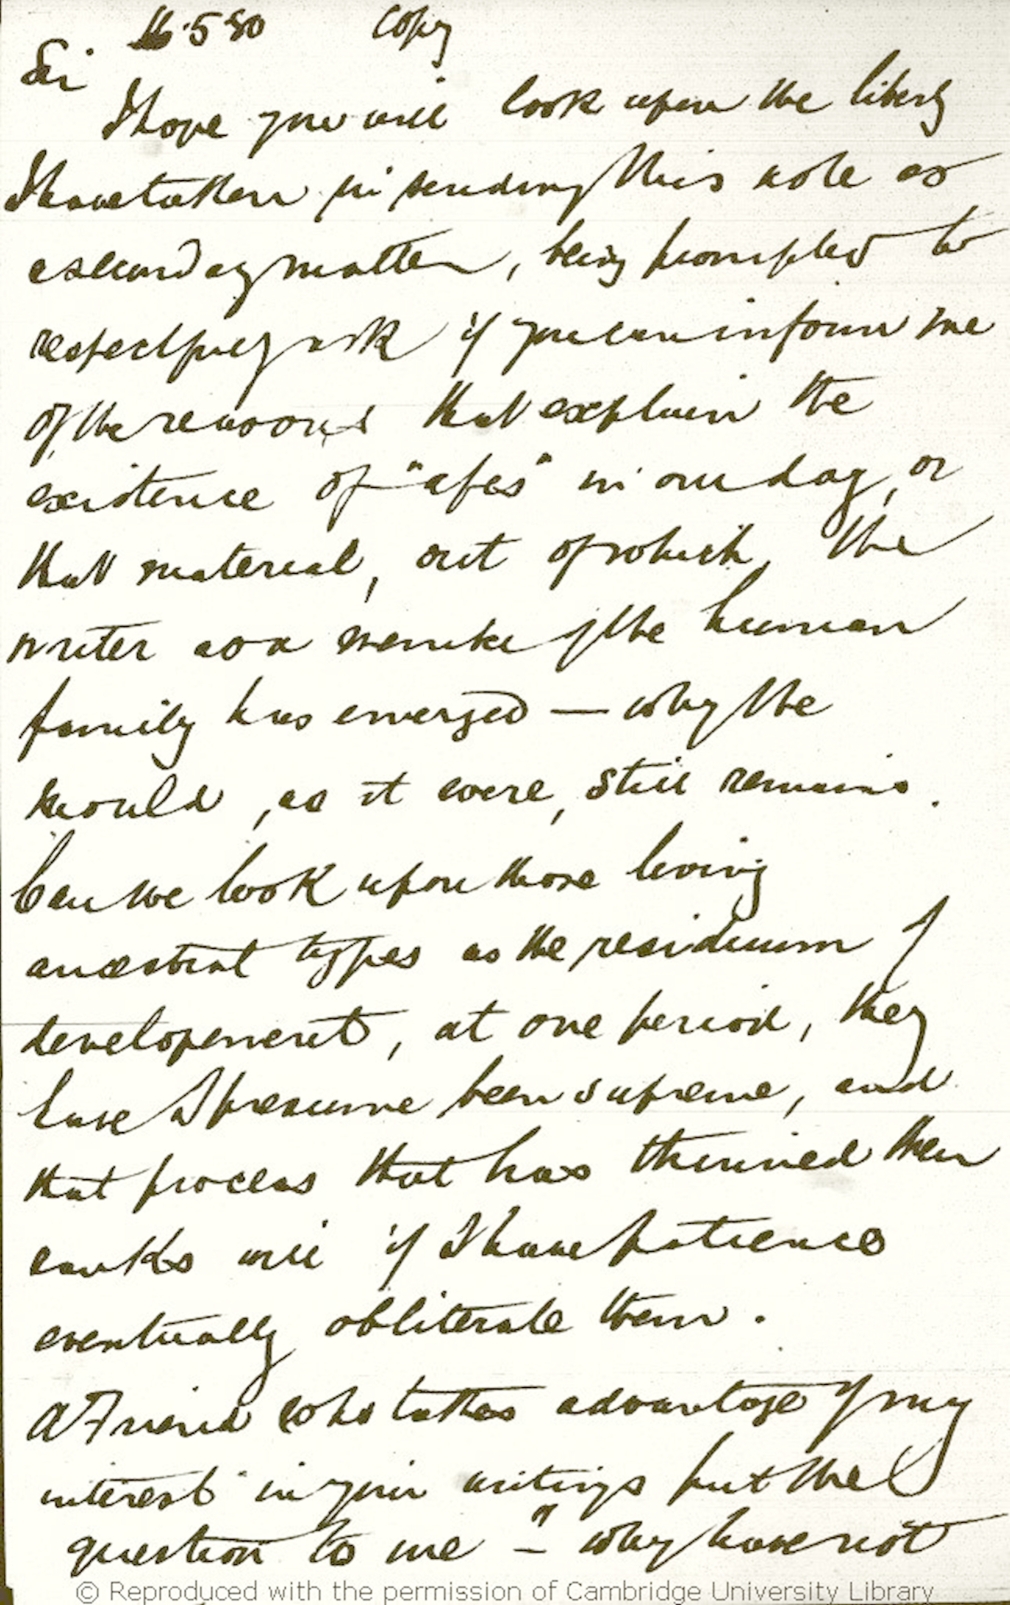 16.5 80 Copy
Sir
I hope you will look upon the liberty
I have taken in sending this note as
a secondary matter, being prompted to
respectfully ask if you can inform me
of the reasons that explain the
existence of "apes" in our day, or
that material, out of which, the
writer as a member of the human
family has emerged — why the
mould, as it were, still remains.
Can we look upon those living
ancestral types as the residuum of
developement, at one period, they
have I presume been supreme, and
that process that has thinned their
ranks will if I have patience
eventually obliterate them.
A Friend who takes advantage of my
interest in your writings put the
question to me — "why have not
© Reproduced with the permission of Cambridge University Library